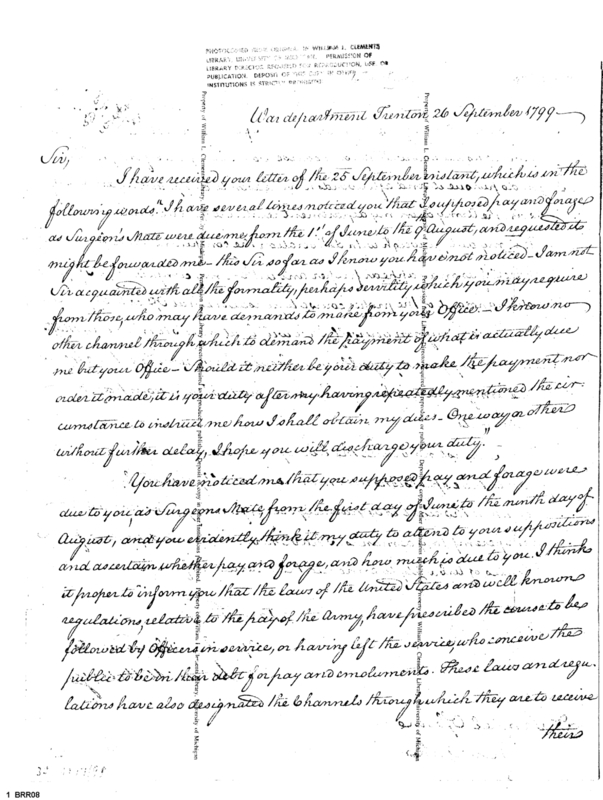 PHOTOCOPIED FROM ORIGINAL IN WILLIAM L. CLEMENTS
LIBRARY, UNIVERSITY OF MICHIGAN. PERMISSION OF
LIBRARY DIRECTOR REQUIRED FOR REPRODUCTION, USE OR
PUBLICATION. DEPOSIT OF THIS COPY IN OTHER
INSTITUTIONS IS STRICTLY PROHIBITED
War department Trenton 26 September 1799
Sir,
I have received your letter of the 25 September instant, which is in the
following words. "I have several times noticed you that I supposed pay and forage
as Surgeon's Mate were due me, from the 1st. of June to the 9 August, and requested it
might be forwarded me - this Sir so far as I know you have not noticed - I am not
Sir acquainted with all the formality, perhaps servility which you may require
from those, who may have demands to make from your Office. - I know no
other channel through which to demand the payment of what is actually due
me but your Office - Should it neither be your duty to make the payment nor
order it made, it is your duty after my having repeatedly mentioned the cir-
cumstance to instruct me how I shall obtain my dues - One way or other
without further delay, I hope you will discharge your duty."
You have noticed me that you supposed pay and forage were
due to you, as Surgeons Mate from the first day of June to the ninth day of
August, and you evidently think it my duty to attend to your suppositions
and ascertain whether pay and forage, and how much is due to you. I think
it proper to inform you that the laws of the United States and well known
regulations, relative to the pay of the Army, have prescribed the course to be
followed by Officers in service, or having left the service, who conceive the
public to be in their debt for pay and emoluments. These laws and regu-
lations have also designated the Channels through which they are to receive
their
1 BRR08